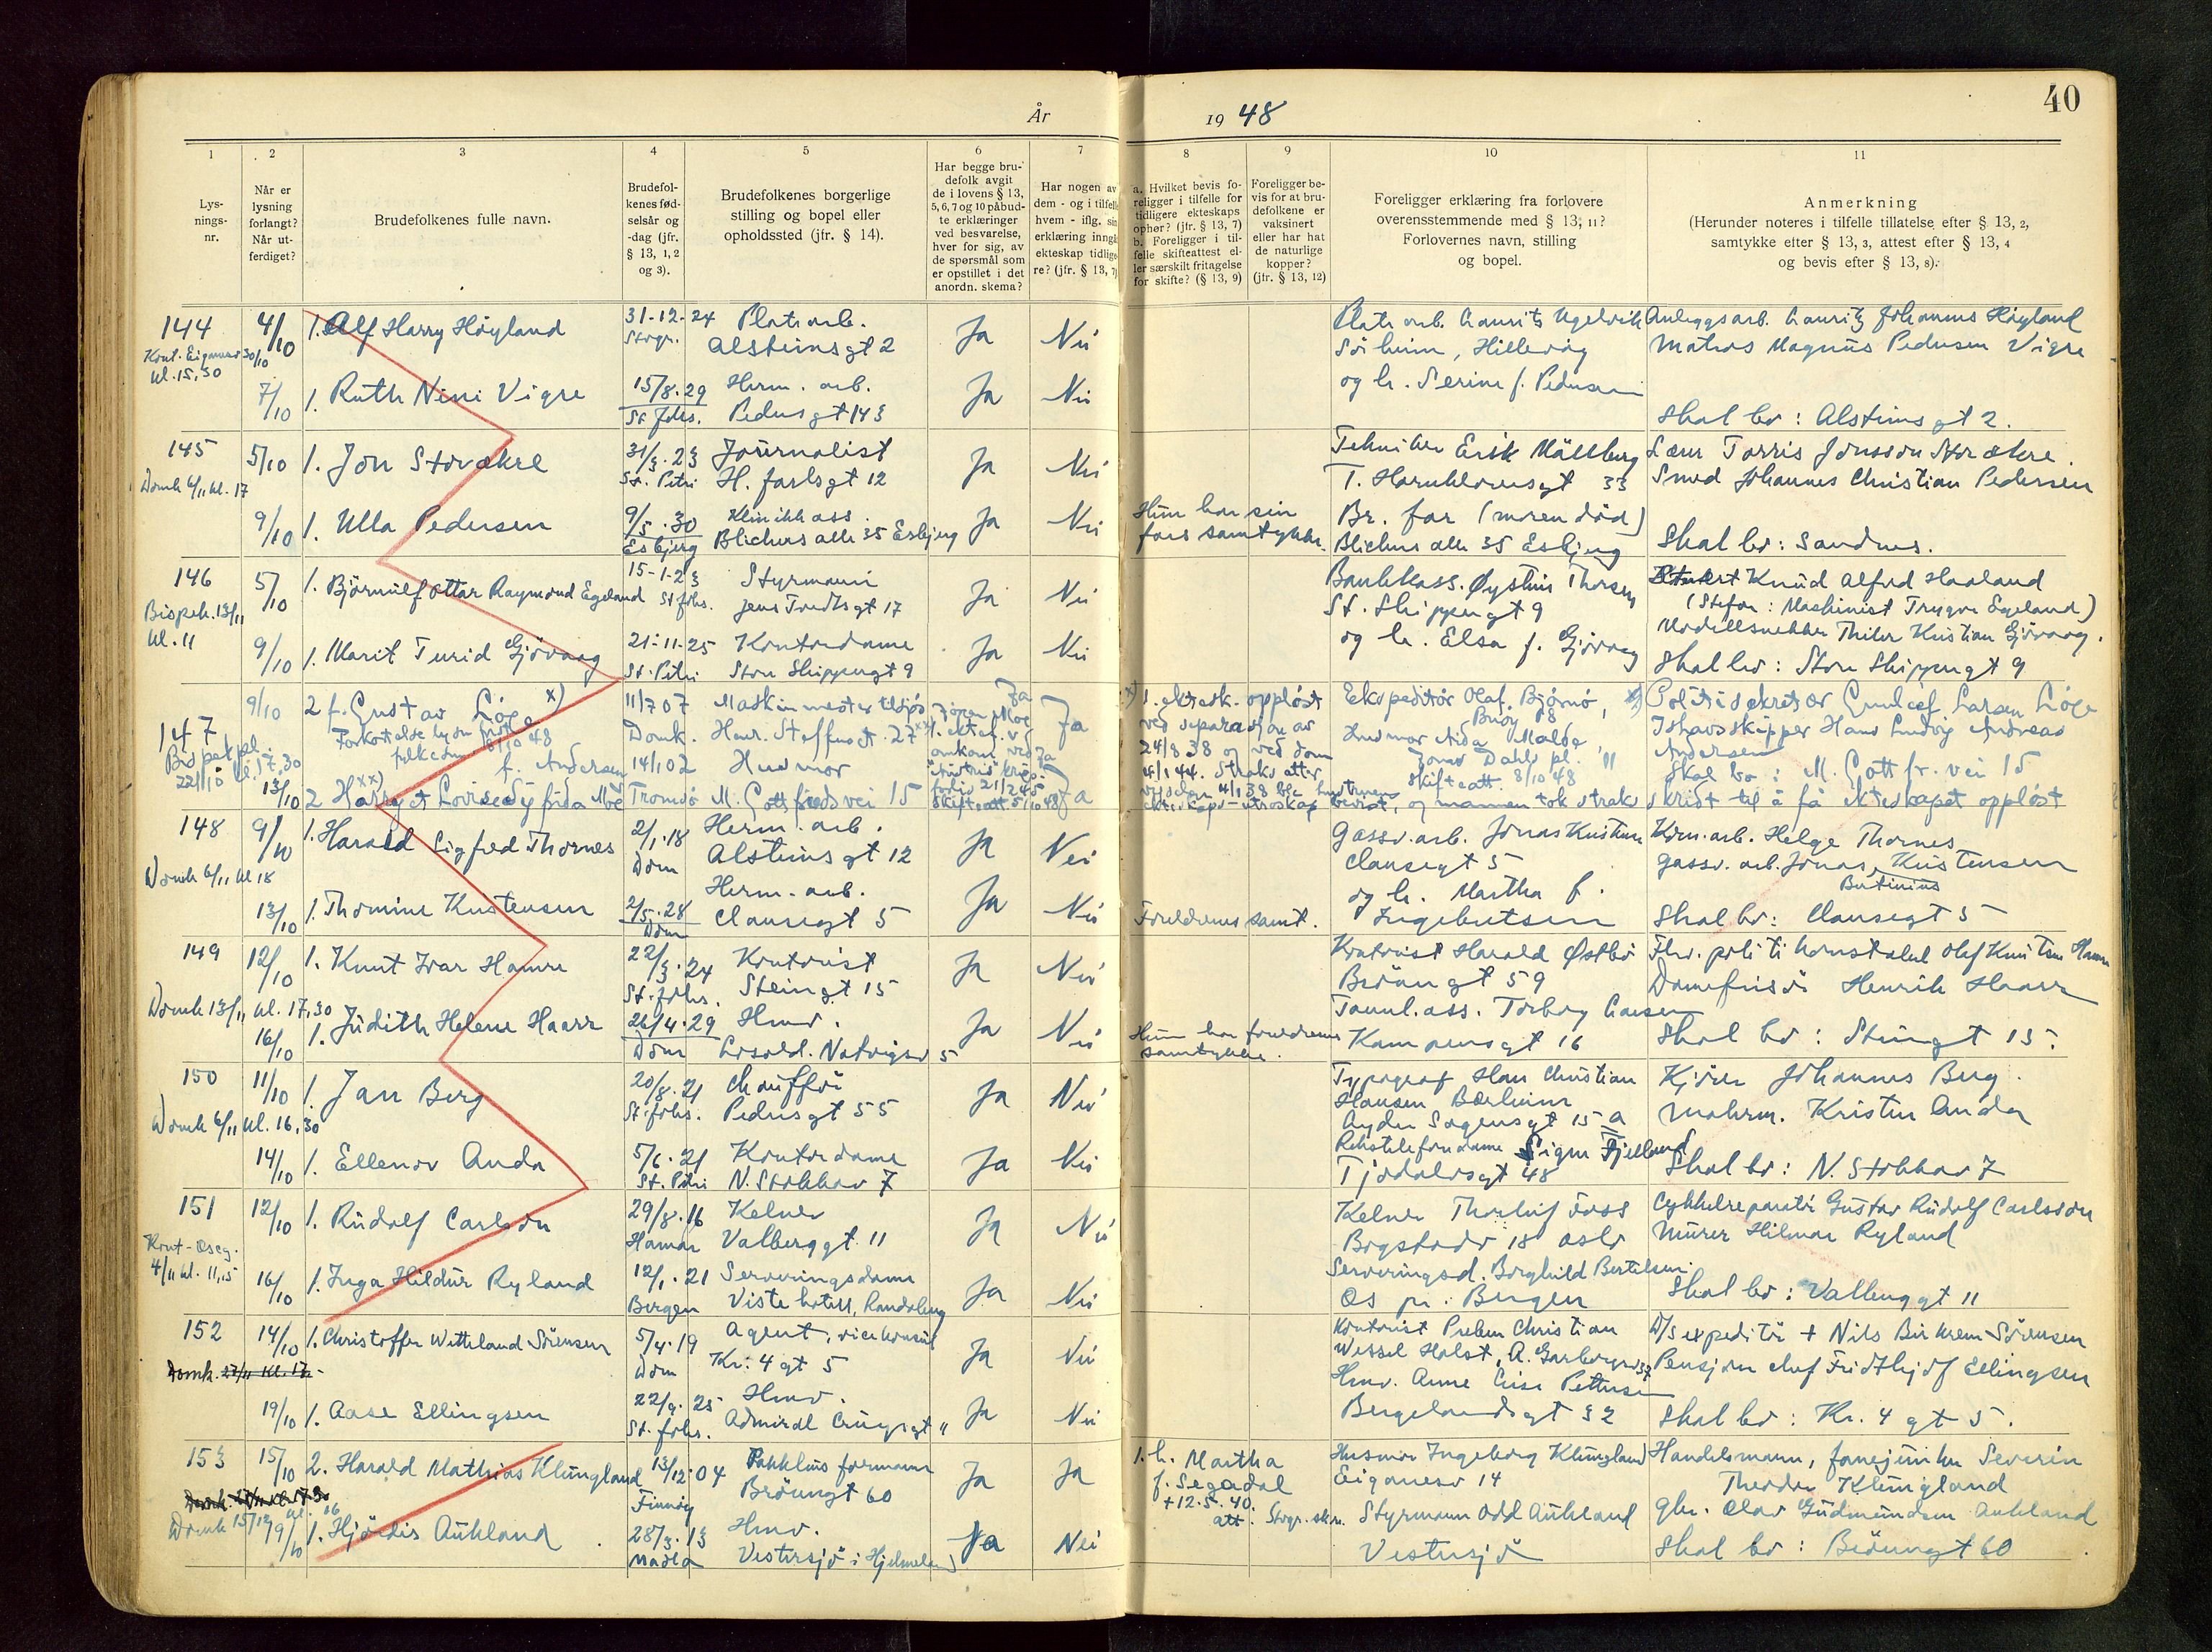 År
19 48
40
1
Lys-
nings-
nr.
2
Når er
lysning
forlangt?
Når ut-
ferdiget?
3
Brudefolkenes fulle navn.
4
Brudefol-
kenes fød-
selsår og
-dag (jfr.
§ 13, 1, 2
og 3).
5
Brudefolkenes borgerlige
stilling og bopel eller
opholdssted (jfr. § 14).
6
Har begge bru-
defolk avgit
de i lovens § 13,
5, 6, 7 og 10 påbud-
te erklæringer
ved besvarelse,
hver for sig, av
de spørsmål som
er opstillet i det
anordn. skema?
7
Har nogen av
dem - og i tilfelle
hvem - iflg. sin
erklæring inngå
ekteskap tidlige-
re? (jfr. § 13, 7)
8
a. Hvilket bevis fo-
religger i tilfelle for
tidligere ekteskaps
ophør? (jfr. § 13, 7)
b. Foreligger i til-
felle skifteattest el-
ler særskilt fritagelse
for skifte? (§ 13, 9)
9
Foreligger be-
vis for at bru-
defolkene er
vaksinert
eller har hat
de naturlige
kopper?
(jfr. § 13, 12)
10
Foreligger erklæring fra forlovere
overensstemmende med § 13, 11?
Forlovernes navn, stilling
og bopel.
11
Anmerkning
(Herunder noteres i tilfelle tillatelse efter § 13, 2,
samtykke efter § 13, 3, attest efter § 13, 4
og bevis efter § 13, 8).
144
Kont. Eiganes 30/10
kl. 15,30
4/10
1. Alf Harry Høyland
31-12-24
Stvgr.
Platearb.
Alsteinsgt 2
Ja
Nei
7/10
1. Ruth Nini Vigre
15/8.29
St. Johs.
Herm. arb.
Pedersgt 143
Ja
Nei
Platearb. Lauritz Ugelvik
Sørheim, Hillevåg
og h. Serine f. Pedersen
Anleggsarb. Lauritz Johannes Høyland
Matros Magnus Pedersen Vigre
Skal bo: Alsteinsgt 2.
145
Domk 6/11 kl. 17
5/10
1. Jon Storækre
31/3.23
St. Petri
Journalist
H. Jarlsgt 12
Ja
Nei
9/10
1. Ulla Pedersen
9/5.30
Esbjerg
Klinikkass.
Blichers alle 35 Esbjerg
Ja
Nei
Hun har sin
fars samtykke.
Tekniker Erik Mällberg
T. Hornklovesgt 33
Br. far (moren død)
Blichers alle 35 Esbjerg
Lærer Torris Jonsson Storækre.
Smed Johannes Christian Pedersen
Skal bo: Sandnes.
146
Bispek. 13/11
kl. 11
5/10
1. Bjørnulf Ottar Raymond Egeland
15-1-23
St. Johs.
Styrmann
Jens Tvedtsgt 17
Ja
Nei
9/10
1. Marit Turid Gjøvaag
21-11-25
St. Petri
Kontordame
Store Skippergt 9
Ja
Nei
Bankkass. Øystein Thorsen
St. Skippergt 9
og h. Elsa f. Gjøvaag
Knud Alfred Haaland
(Stefar: Maskinist Trygve Egeland)
Modellsnekker Thilor Kristian Gjøvaag.
Skal bo: Store Skippergt 9
147
Bispekapel.
22/10 kl. 17.30
9/10
2 f. Gustav Løge x)
Forkortelse lysn.
8/10 48
11/7 07
Domk.
Maskinmester tilsjøs
Henr. Steffensgt. 27
Ja
Ja
13/10
2 Harryet Lovise Sigfrida Moe xx)
f. Andersen
14/1 02
Tromsø
Husmor
M. Gottfredsvei 15
Ja
Ja
xx) 1. ektef.
Jørgen Moe
omkom ved
"Austris" krigs-
forlis 21/2 45
Skifteatt. 5/10 48
x) 1. ektesk. oppløst
ved separasjon av
24/8 38 og ved dom
4/1 44. Straks etter
Ekspeditør Olaf Bjørnø,
Buøy 18
Husmor Aida Malde,
Joner Dahls pl. 11
Skifteatt. 8/10 48
og mannen tok straks
x) Politisekretær Gunleif Larsen Løge
Ishavsskipper Hans Ludvig Andreas
Andersen
Skal bo: M. Gottfr. vei 15
skridt til å få ekteskapet oppløst
148
Domk 6/11 kl 18
9/10
1. Harald Sigfred Thornes
2/1.18
Dom
Herm. arb.
Alsteinsgt 12
Ja
Nei
13/10
1. Thomine Kristensen
2/5.28
Dom
Herm. arb.
Clausegt 5
Ja
Nei
Foreldrenes samt.
Gassv. arb. Jonas Kristensen
Clausegt 5
og h. Martha f.
Ingebretsen
Kom. arb. Helge Thornes
Gassv. arb. Jonas Kristensen
Bertinius
Skal bo: Clausegt 5
149
Domk 13/11 kl. 17,30
12/10
1. Knut Ivar Hamre
22/3.24
St. Johs.
Kontorist
Steingt 15
Ja
Nei
16/10
1. Judith Helene Haarr
26/4.29
Dom
Hmv.
Løsold. Natvigsv 5
Ja
Nei
Hun har foreldrenes
samtykke.
Kontorist Harald Østbø
Brøungt 59
Tannl. ass. Torborg Larsen
Kampensgt 16
Fhv. politikonstabel Olaf Knutsen Hamre
Damefrisør Henrik Haarr
Skal bo: Steingt 15.
150
Domk 6/11 kl. 16,30
11/10
1. Jan Berg
20/8.21
St. Johs.
Chauffør
Pedersgt 55
Ja
Nei
14/10
1. Ellenor Anda
5/6.21
St. Petri
Kontordame
N. Stokkav 7
Ja
Nei
Typograf Hans Christian
Hansen Bærheim
Ryder Sagensgt 15 a
Rikstelefondame Signe Fjelland
Tjodolvsgt 48
Kjører Johannes Berg.
Malerm. Kristen Anda
Skal bo: N. Stokkav 7
151
Kont-Oseg.
4/11 kl. 11,15
12/10
1. Rudolf Carlsson
29/8.16
Hamar
Kelner
Valberggt. 11
Ja
Nei
16/10
1. Inga Hildur Ryland
12/1.21
Bergen
Serveringsdame
Viste hotell, Randaberg
Ja
Nei
Kelner Thorleif Foss
Bogstadv 18 Oslo
Serveringsd. Borghild Bertelsen.
Os pr. Bergen
Cykkelreparatør Gustav Rudolf Carlsson
Murer Hilmar Ryland
Skal bo: Valberggt 11
152
Domk. 27/11 Kl. 17
14/10
1. Christoffer Wetteland Sørensen
5/4.19
Dom
Agent, visekonsul
Kr. 4 gt 5
Ja
Nei
19/10
1. Aase Ellingsen
22/9.25
St. Johs.
Hmv.
Admiral Cruysgt 11
Ja
Nei
Kontorist Preben Christian
Wessel Holst, A. Garborgsv 37
Hmv. Anne Lise Pettersen
Bergelandsgt 32
D/S expeditør + Nils Birkrem Sørensen
Pensjon chef Fridthjof Ellingsen
Skal bo: Kr. 4 gt 5.
153
Domk 15/12 kl. 16
15/10
2. Harald Mathias Klungland
13/12.04
Finnøy
Pakkhusformann
Brøungt 60
Ja
Ja
19/10
1. Hjørdis Aukland
28/3.13
Madla
Hmv.
Vestersjø i Hjelmeland
Ja
Nei
1. h. Martha
f. Segadal
+12.5.40.
att. Stvgr. skr.
Husmor Ingeborg Klungland
Eiganesv 14
Styrmann Odd Aukland
Vestersjø
Handelsmann, fanejunker Severin
Theodor Klungland
gbr. Olav Gudmundsen Aukland
Skal bo: Brøungt 60